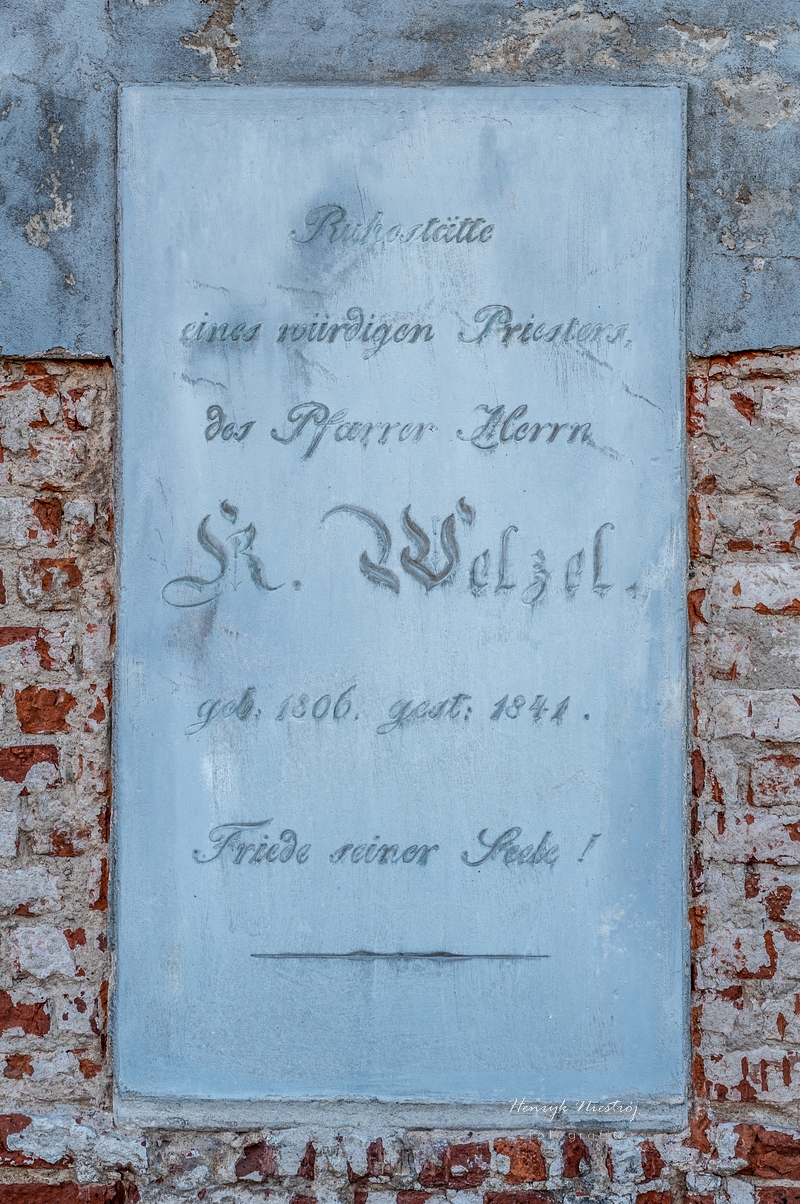 Ruhestätte
eines würdigen Priesters,
des Pfarrer Herrn
K. Welzel.
geb: 1806. gest: 1841.
Friede seiner Seele!
Henryk Niestrój